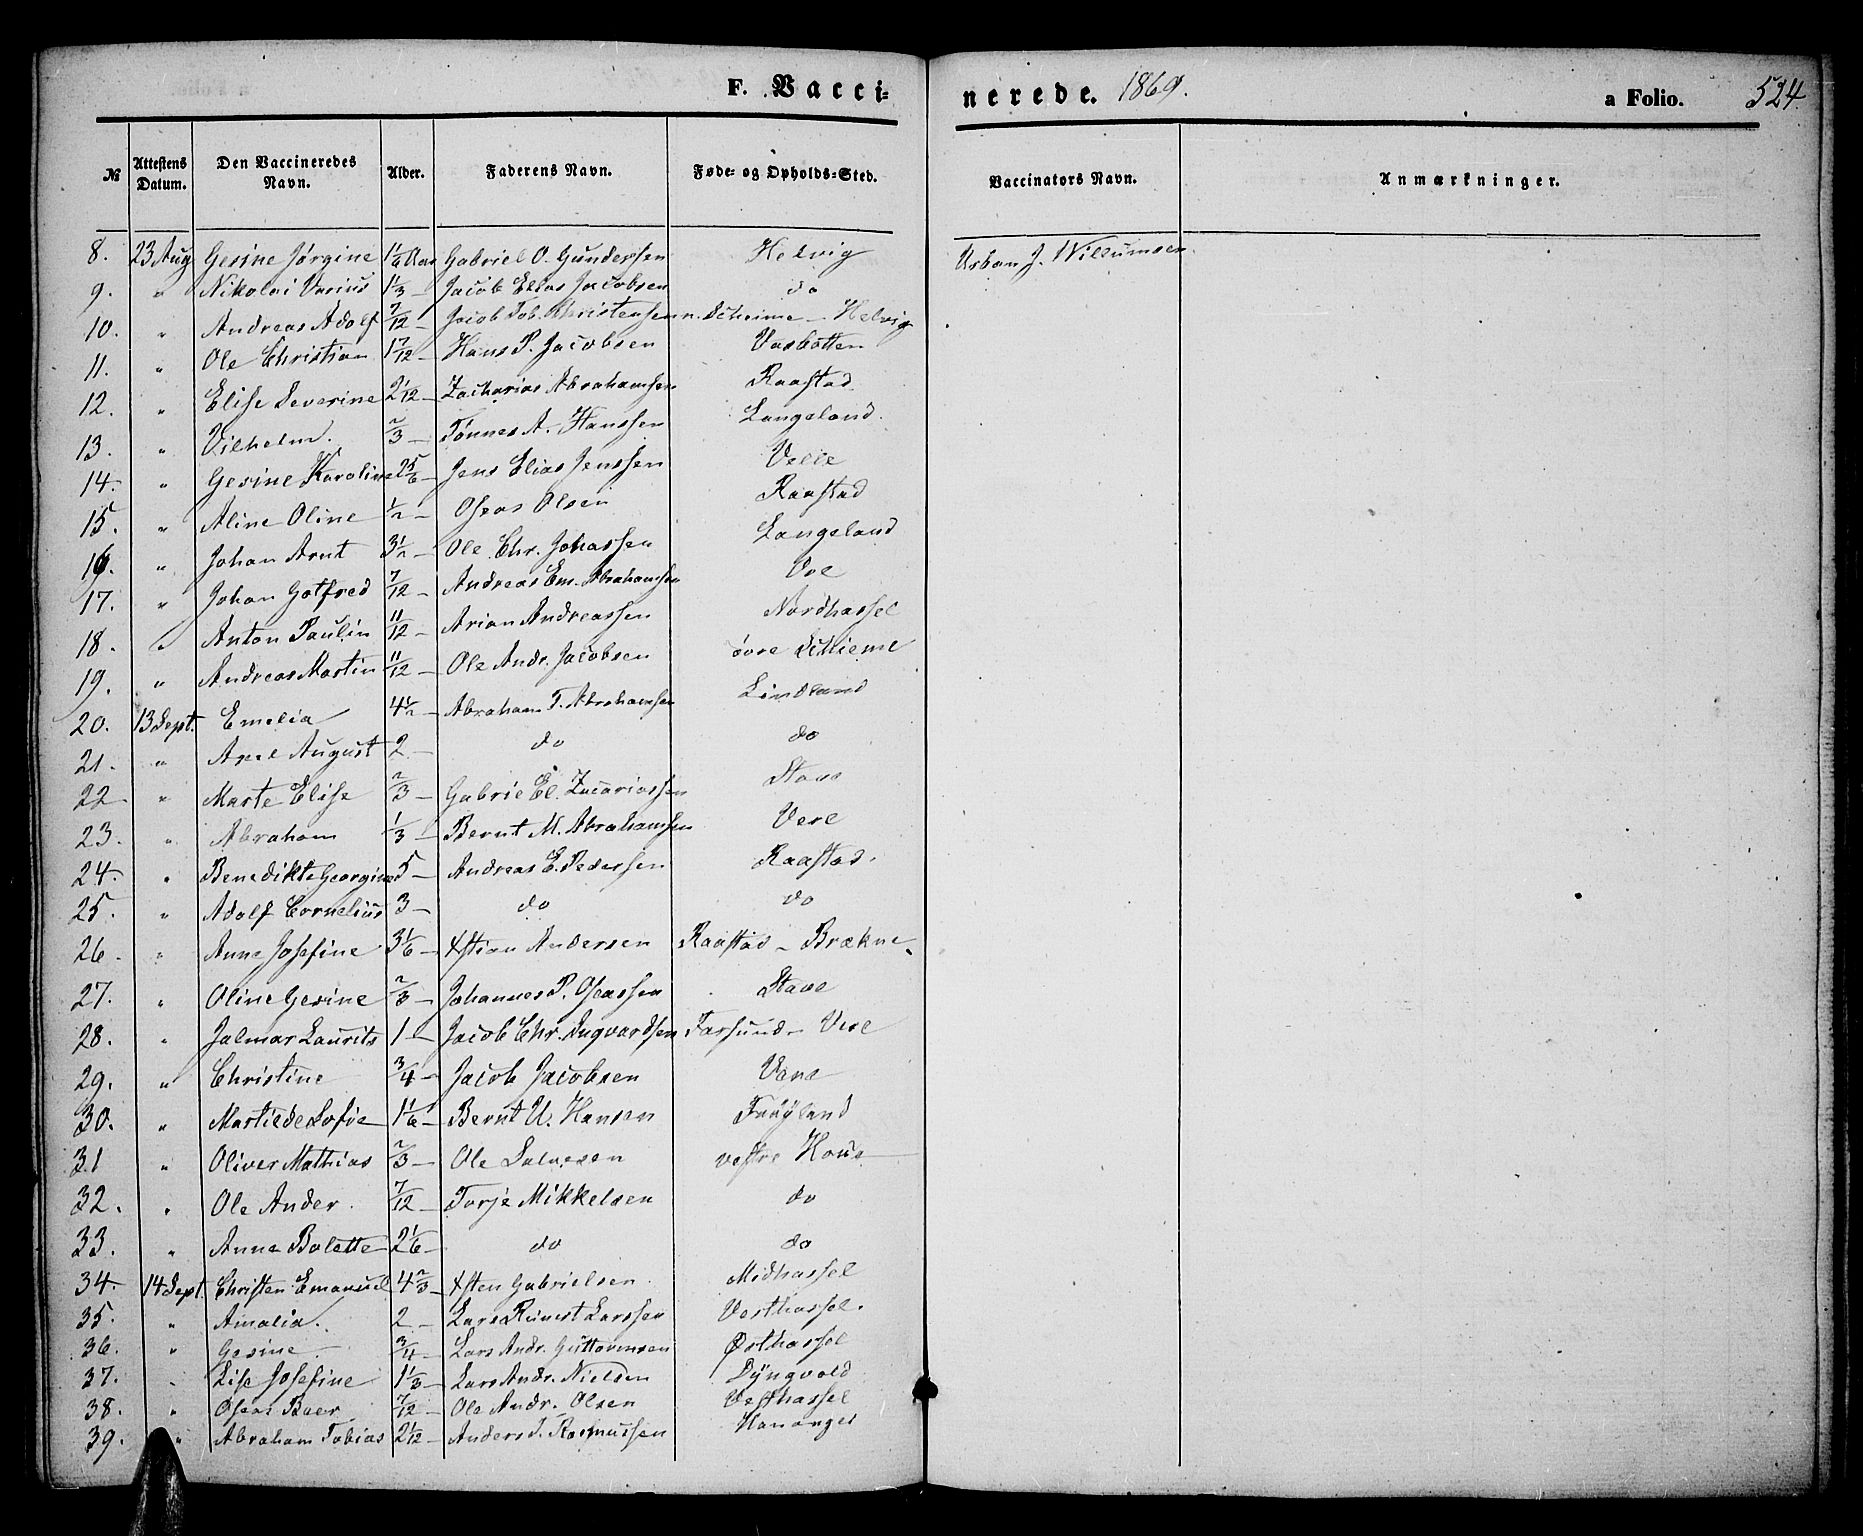 F. Vacci-
nerede. 1869.
a Folio. 524.
№ Attestens Datum. Den Vaccineredes Navn. Alder. Faderens Navn. Føde- og Opholds-Sted. Vaccinators Navn. Anmærkninger.
8. 23 Aug Gesine Jørgine 1 1/4 Aar Gabriel O. Gundersen Helvig Urban J. Willumsen
9. " Nikolai Varius 1 1/3 – Jacob Elias Jacobsen do
10. " Andreas Adolf 7/12 – Jacob Tob. Christensen n. Skeime – Helvig
11. " Ole Christian 1 7/12 – Hans P. Jacobsen Vasbotten
12. " Elise Severine 2 1/12 – Zacharias Abrahamsen Raastad
13. " Vilhelm. 2/3 – Tønnes A. Hanssen Langeland.
14. " Gesine Karoline 2 5/6 – Jens Elias Jenssen Velle
15. " Aline Oline 1/2 – Oseas Olsen Raastad
16. " Johan Arnt 3 1/2 – Ole Chr. Johassen Langeland
17. " Johan Gotfred 7/12 – Andreas Em. Abrahamsen Ore
18. " Anton Paulin 11/12 – Arian Andreassen Nordhassel
19. " Andreas Martin 11/12 – Ole Andr. Jacobsen øvre Skieme
20. 13 Sept. Emelia 4 1/2 – Abraham T. Abrahamsen Lindland
21. " Axel August 2 – do do
22 " Marte Elise 2/3 – Gabriel El. Zacariassen Stave
23. " Abraham 1/3 – Bernt M. Abrahamsen Vere
24. " Benedikte Georgine 5 – Andreas E. Pedersen Raastad.
25. " Adolf Cornelius 3 – do do
26. " Anne Josefine 3 1/6 – Xstian Andersen Raastad – Brækne
27. " Oline Gesine 2/3 – Johannes P. Oseassen Stave
28. " Jalmar Laurits 1 – Jacob Chr. Ingvardsen Farsund – Vere
29. " Christine 3/4 – Jacob Jacobsen Vane
30. " Martilde Sofie 1 1/6 – Bernt U. Hansen Frøÿland
31 " Oliver Mathias 2/3 – Ole Salvesen vestre Houe
32. " Ole Ander. 7/12 – Torje Mikkelsen do
33. " Anne Bolette 2 1/6 – do do
34. 14 Sept. Christen Emanuel 4 2/3 – Xsten Gabrielsen Midhassel
35. " Amalia. 2 – Lars Larssen Vesthassel.
36. " Gesine – 3/4 – Lars Andr. Guttormsen Østhassel
37. " Lise Josefine 1 1/3 – Lars Andr. Nielsen Dÿngvold
38. " Oseas Beer 7/12 – Ole Andr. Olsen Vesthassel
39. " Abraham Tobias 2 1/12 – Anders T. Rasmussen Hananger